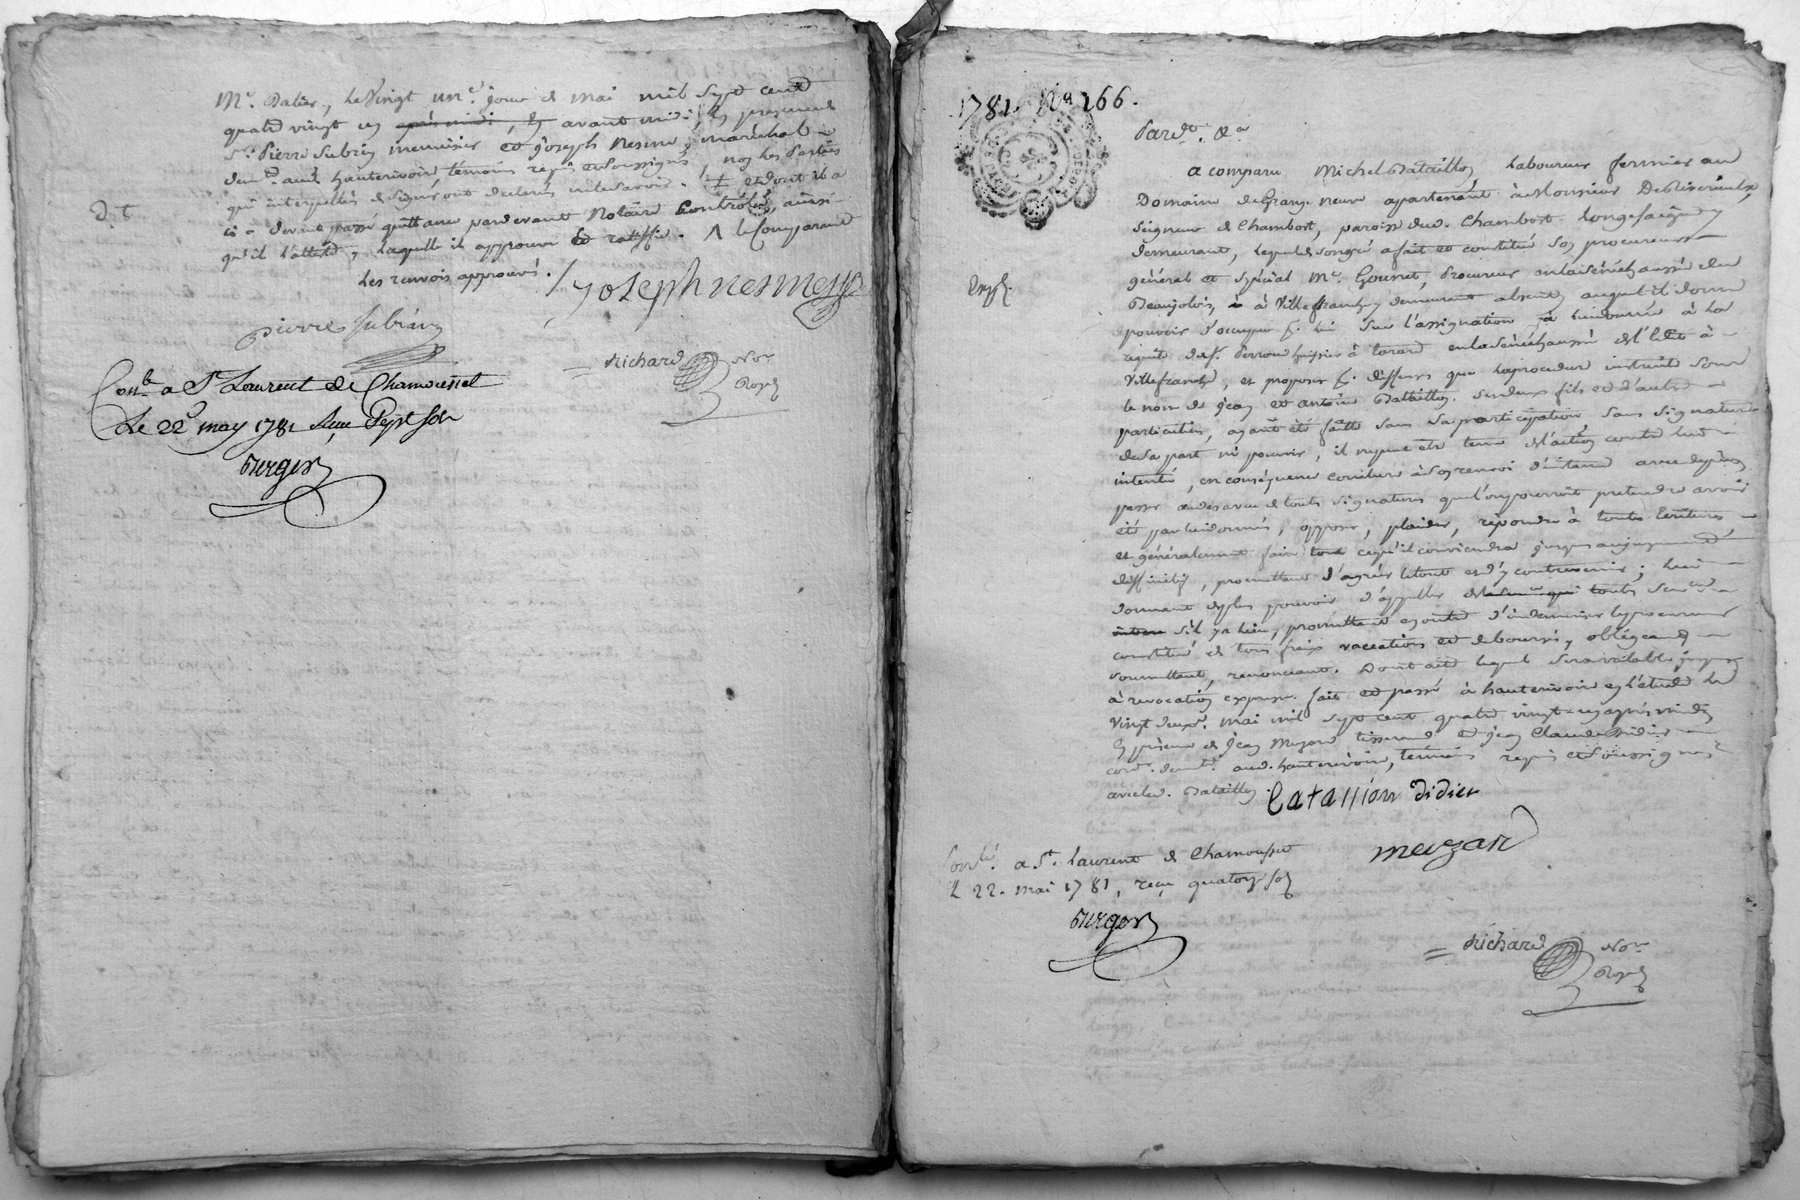 Mr. Dalier, le vingt une. jour de mai mil sept cent
quatre vingt un après midi, En avant midi, En presence
Sr. Pierre Subrin menuisier et joseph Nesme maréchal
dem.t aud. hauterivoir, témoins requis et soussignés, non les Parties
qui interpellés de signer ont déclaré ne le savoir. et dont il a
ci-devant passé quittance pardevant Notaire Controlée, ainsi
qu'il l'atteste, laquelle il approuve et ratiffie. le Comparant
les renvois approuvés.
D. t.
joseph nesme
pierre subrin
Richard No.re
Royal
Con.lé a St Laurent De Chamousset
Le 22 may 1781 Reçu Sept sols
Burgos
1781. Nº 166.
Pard.t &a
a comparu Michel Bataillon laboureur fermier au
Domaine de Grange neuve appartenant à Monsieur
seigneur de Chambost, paroisse dud. Chambost longesaigne y
demeurant, lequel de son gré a fait et constitué son procureur
général et spécial Me. Gouret, Procureur en la sénéchaussée du
Beaujolois, à Villefranche y demeurant absent, auquel il donne
pouvoir d'occuper pr. lui sur l'assignation à lui donnée à la
requête de Sr. Perroud huissier à tarare en la sénéchaussée
Villefranche, et proposer pr. deffenses que la procedure instruite sous
le nom de jean et antoine Bataillon ses deux fils et d'autres
particuliers, ayant été faite sans sa participation sans signature
de sa part ni pouvoir, il ne peut etre tenu de l'action contre lui
intentée, en conséquence conclure à son renvoi d'instance avec dépens
passer au desaveu de toutes signatures que l'on pourroit pretendre avoir
été par lui données, opposer, plaider, répondre à toutes Ecritures,
et généralement faire tout ce qu'il conviendra jusques au jugement
deffinitif, promettant d'agréer le tout et d'y contrevenir; lui
donnant de plus pouvoir d'appeller toutes
s'il y a lieu, promettant en outre d'indemniser le procureur
constitué de tous fraix vaccations et debourses, obligeant
soumettant, renonceant. Dont acte lequel sera vailable jusques
à revocation expresse. fait et passé à hauterivoir en l'étude le
vingt deux. mai mil sept cent quatre vingt un après midi
En présence de jean Mezard tisserand et jean Claude Didier
cord.r dem.t aud. hauterivoir, témoins requis et soussignés
avec led. Bataillon.
Exp.
batallion didier
mezard
Con.lé a St. laurent de Chamousset
L 22. mai 1781, reçu quatorze sols
Burgos
Richard No.re
Royal